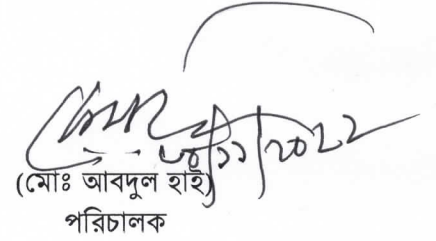 ৩০/১১/২০২২
(মোঃ আবদুল হাই)
পরিচালক